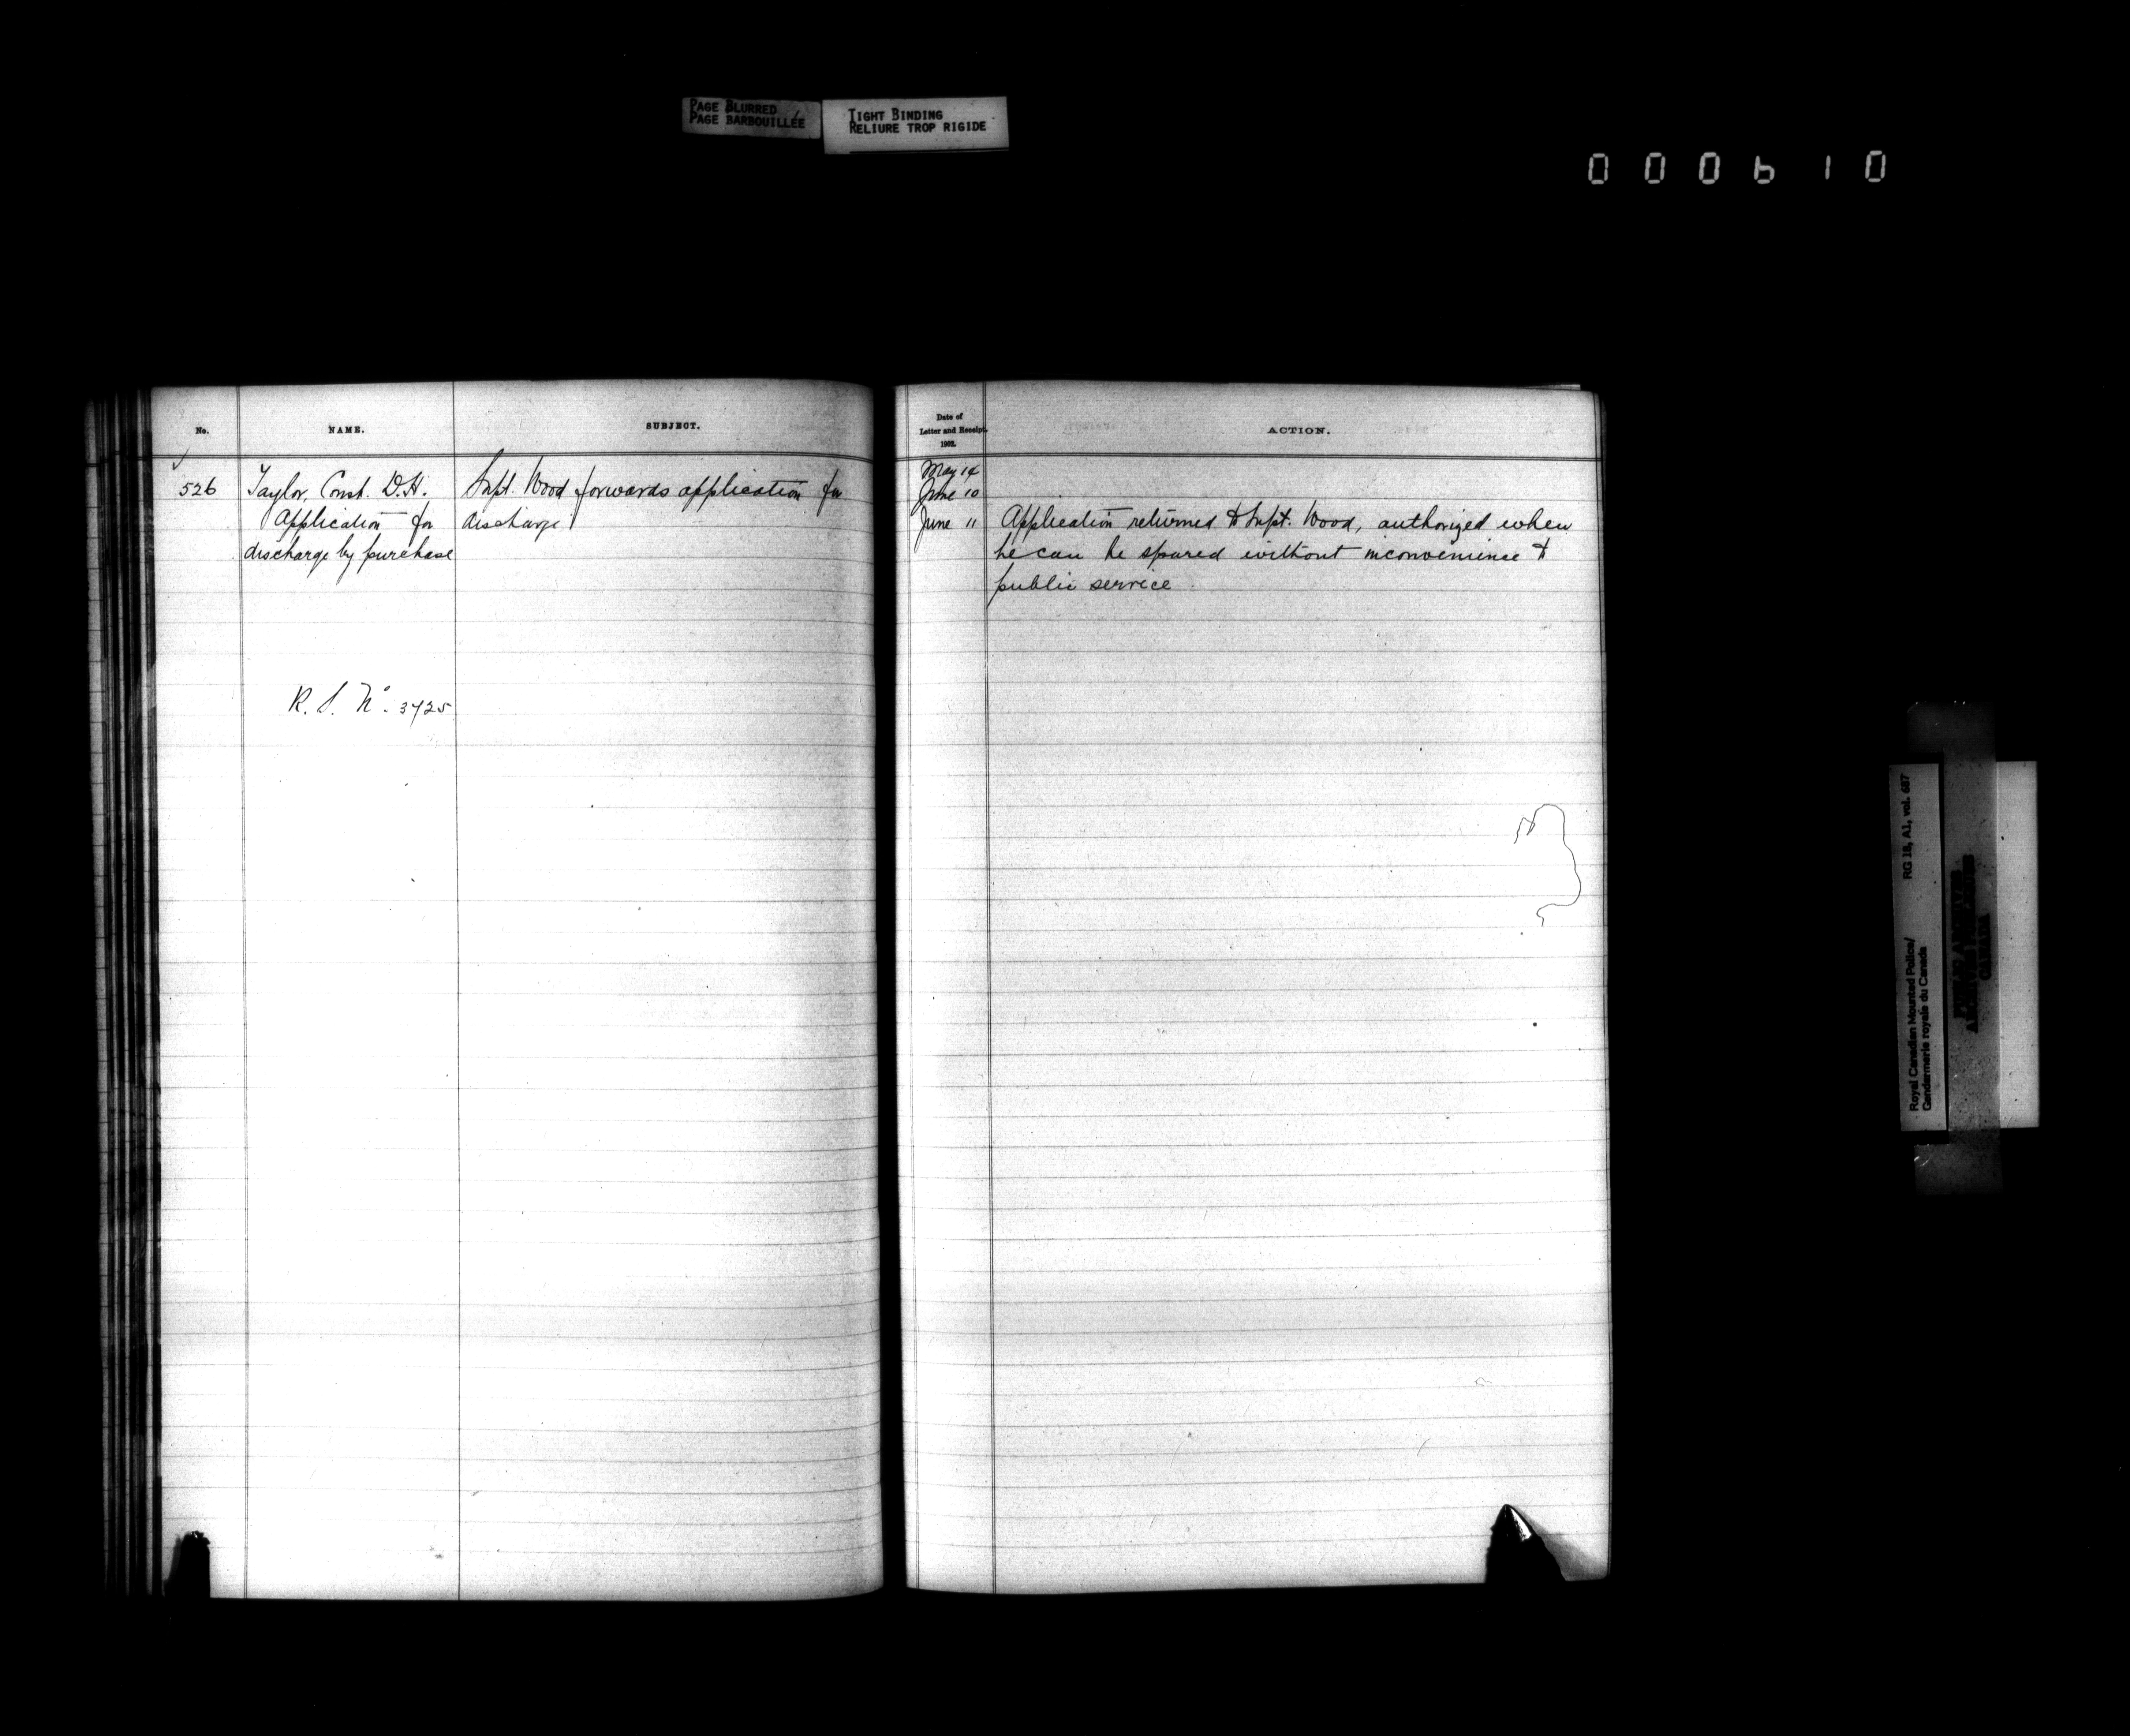 PAGE BLURRED
PAGE BARBOUILLÉE
TIGHT BINDING
RELIURE TROP RIGIDE
000610
No.
NAME.
SUBJECT.
526
Taylor, Const. D.H.
Application for
discharge by purchase
R. S. No. 3725
Supt. Wood forwards application for
discharge
Date of
Letter and Receipt.
1902.
ACTION.
May 14
June 10
June 11
Application returned to Supt. Wood, authorized when
he can be spared without inconvenience to
public service
Royal Canadian Mounted Police/
Gendarmerie royale du Canada
RG 18, A1, vol. 687
CANADA